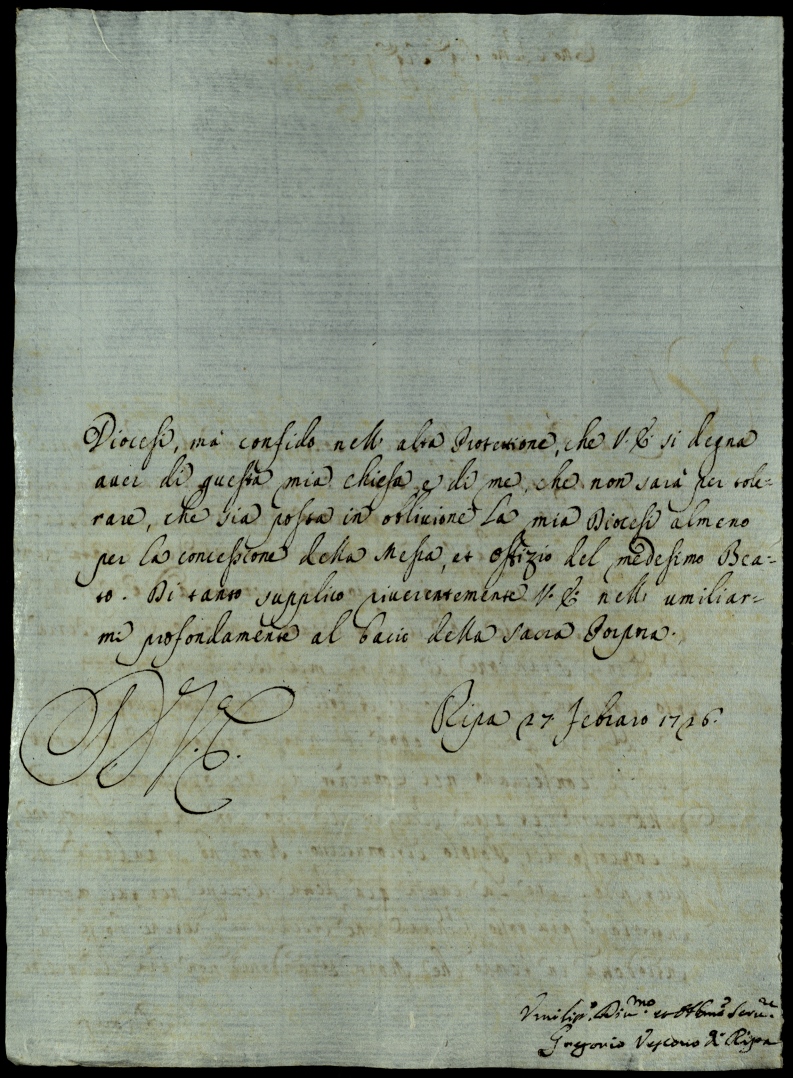 Diocesi, mà confido nell' alta Protettione, che V. E. si degna
aver di questa mia chiesa, e di me, che non sarà per tole-
rare, che sia posta in oblivione la mia Diocesi almeno
per la concessione della Messa, et offizio del medesimo Bea-
to. Di tanto supplico riverentemente V. E. nell' umiliar-
mi profondamente al bacio della sacra Porpora.
Ripa 27 Febraro 1726.
D. V. E.
Vmiliss.º Div.mo et Obmº Serv.re
Gregorio Vescovo di Ripa